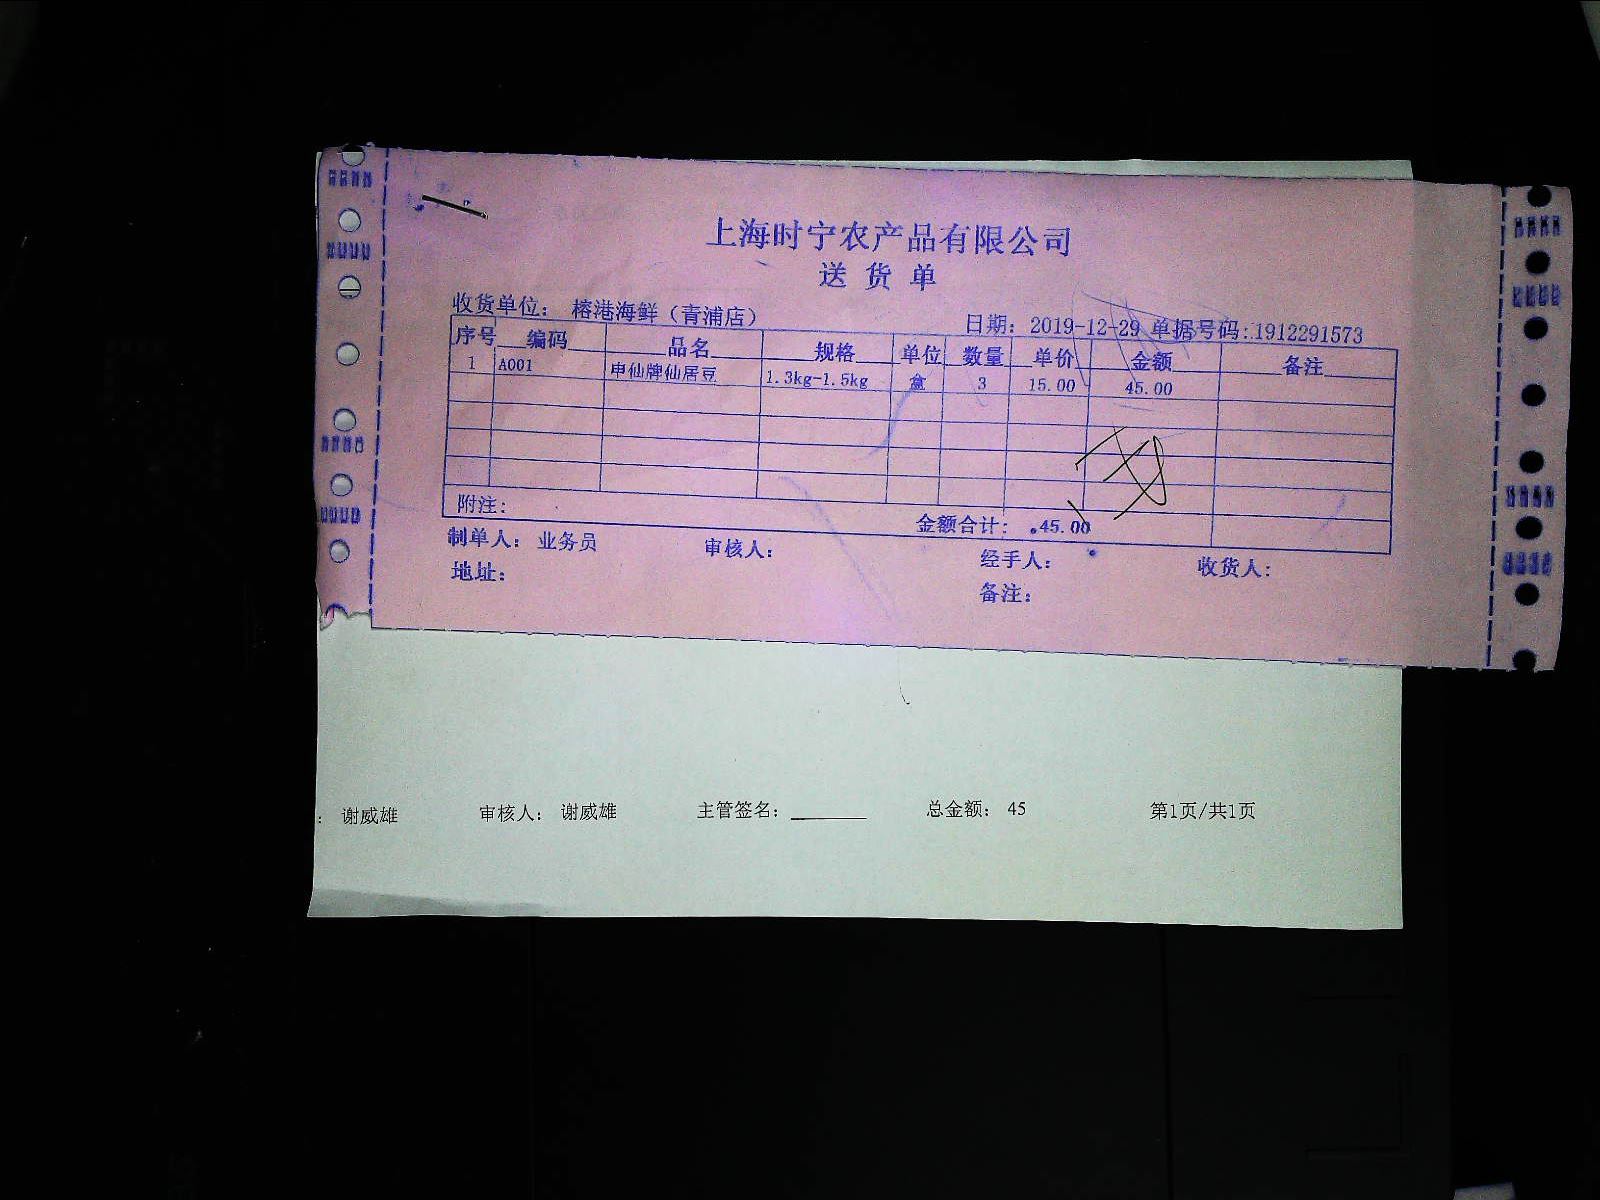 上海时宁农产品有限公司
送 货 单
收货单位： 榕港海鲜（青浦店） 日期：2019-12-29 单据号码:1912291573
序号 编码 品名 规格 单位 数量 单价 金额 备注
1 A001 申仙牌仙居豆 1.3kg-1.5kg 盒 3 15.00 45.00
附注： 金额合计： .45.00
制单人：业务员 审核人： 经手人： 收货人：
地址： 备注：
： 谢威雄 审核人： 谢威雄 主管签名：________ 总金额： 45 第1页/共1页